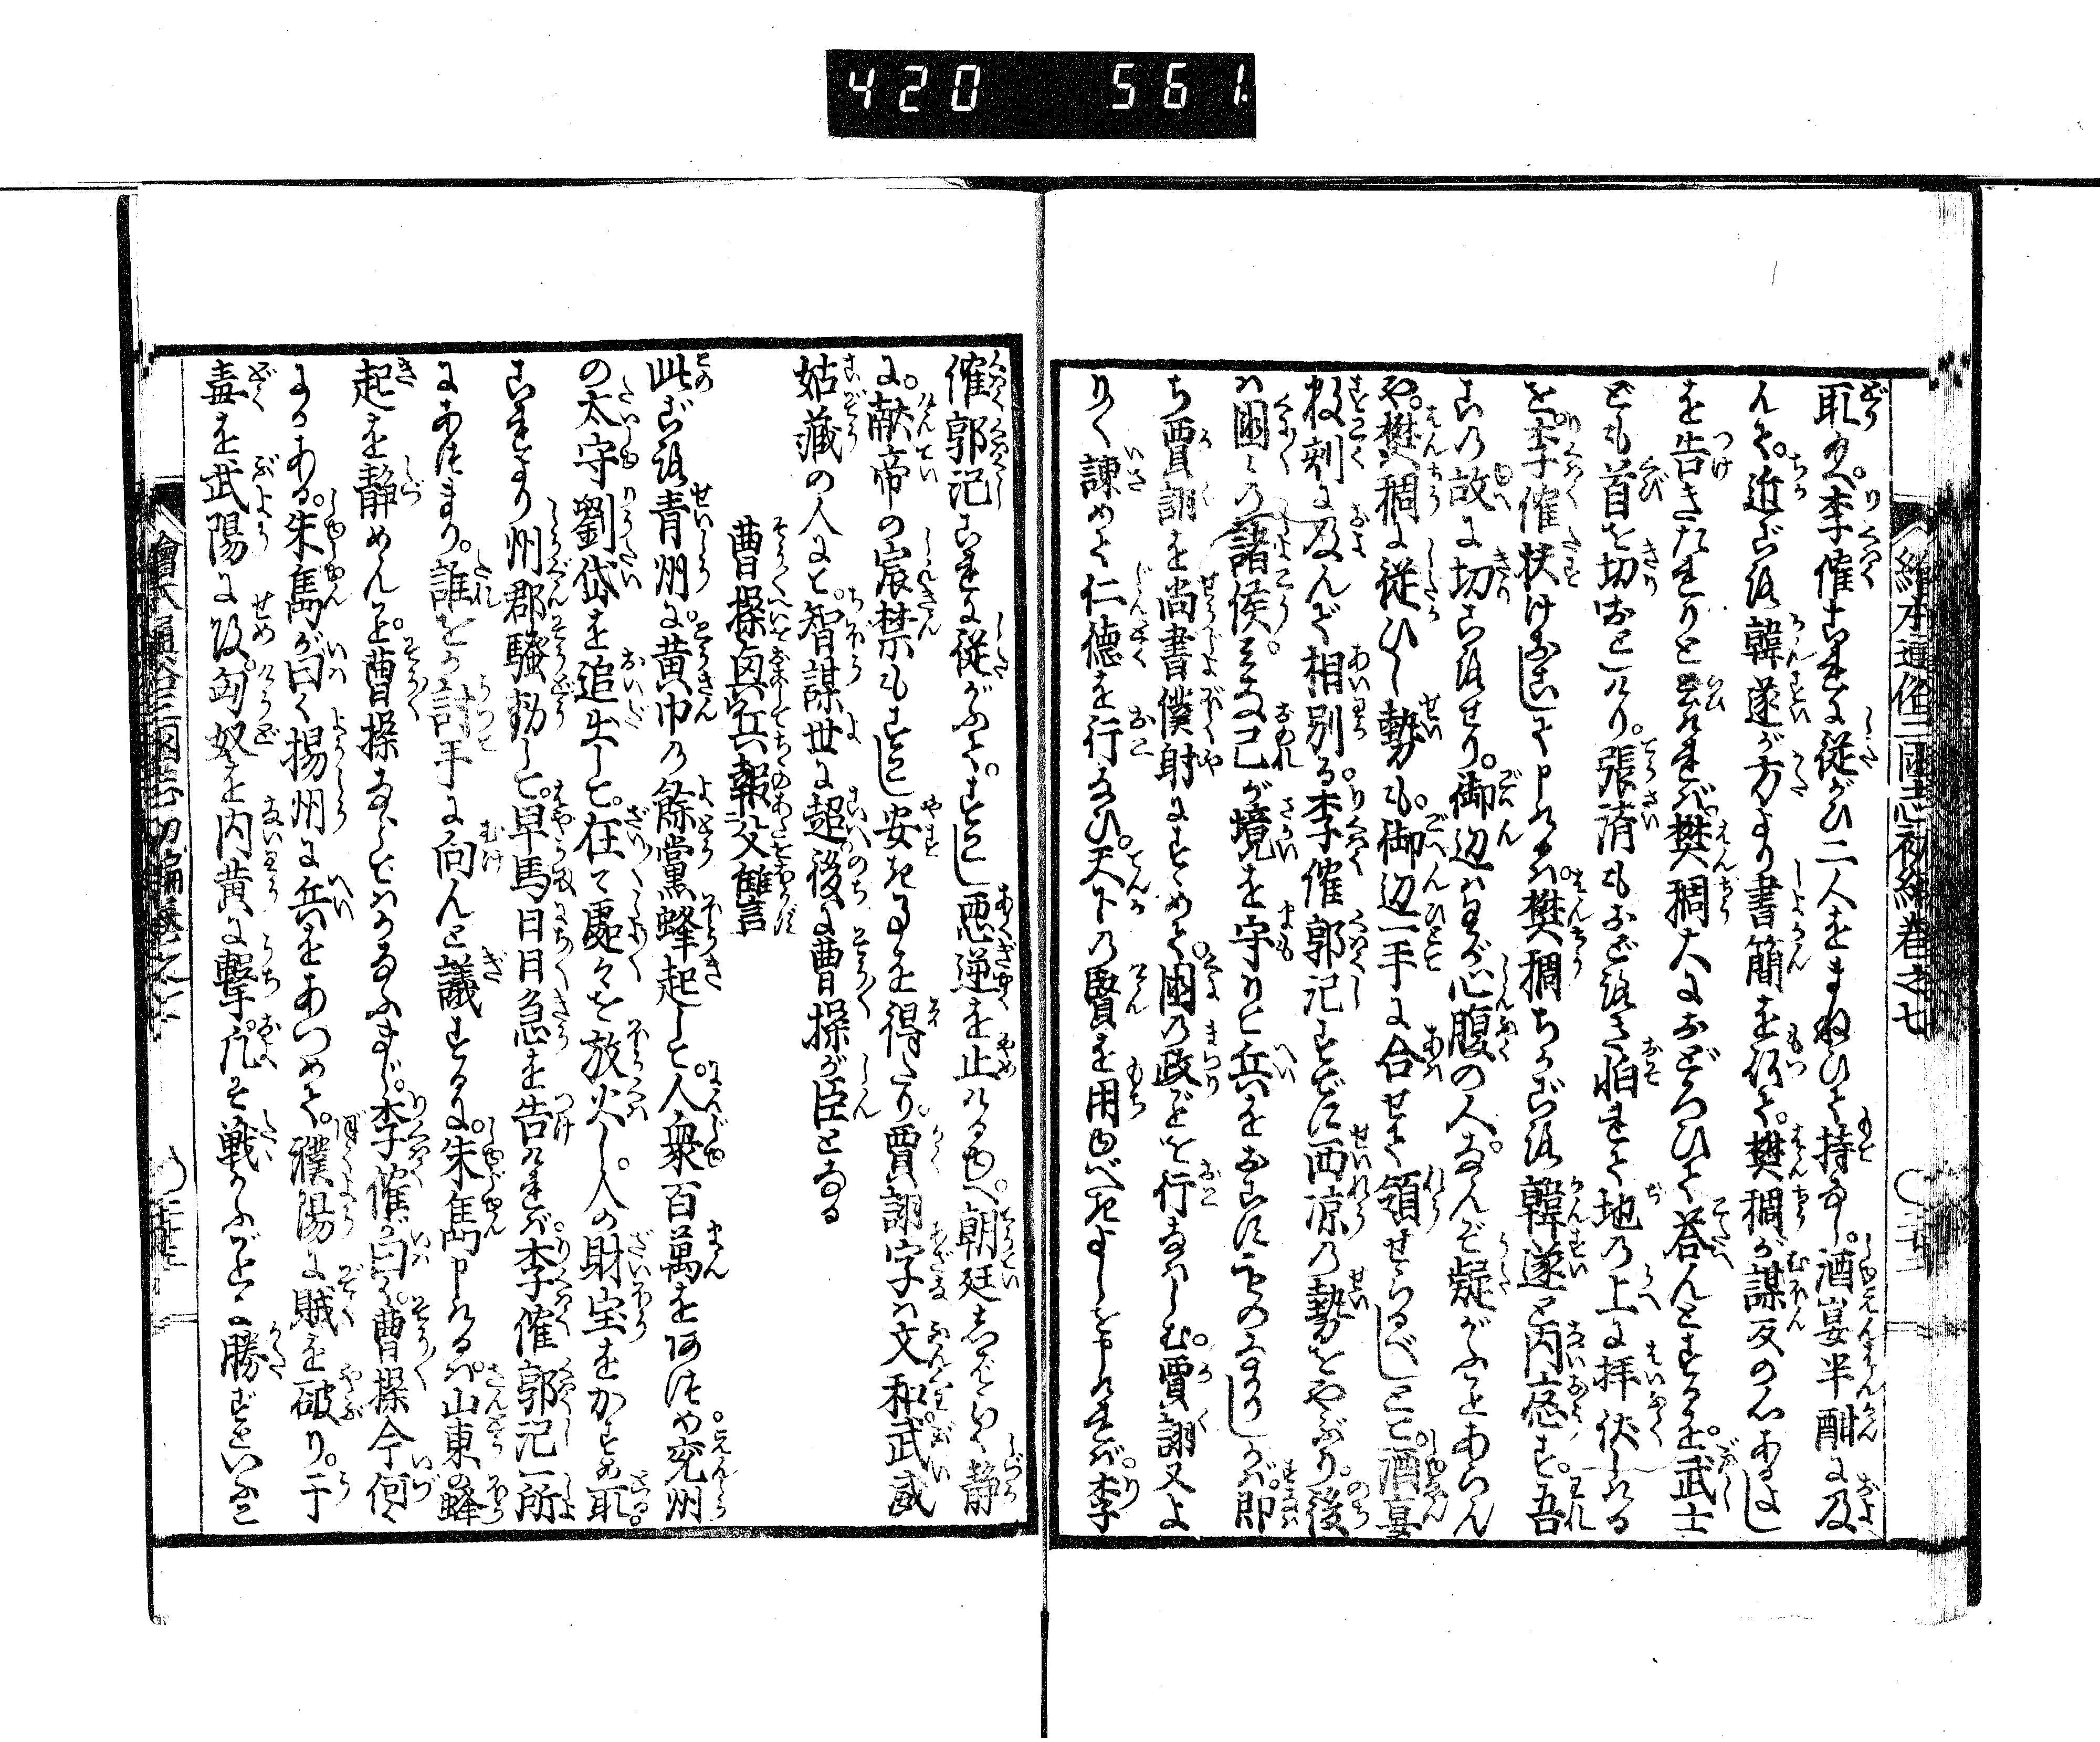 420 561
繪本通俗三國志初編巻之七
取べし。李傕これに従がひ二人をまねひて持なし。酒宴半酣に及
んで。近ごろ韓遂が方より書簡を得て。樊稠が謀反の心あるよし
を告きたれりと云ければ。樊稠大におどろひて答んとするを。武士
ども首を切おとしけり。張済もおどろき怕れて地の上に拝伏しける
を。李傕扶けおこして申けるは。樊稠ちかごろ韓遂と内応す。吾
この故に切ころせり。御辺はわが心腹の人。なんぞ疑がふことあらん
や。樊稠に従ひし勢も。御辺一手に合せて領せらるべしとて。酒宴
数刻に及んで相別る。李傕郭汜すでに西凉の勢をやぶり。後
は國々の諸侯。みな己が境を守りて兵をおこすものなかりしかば。即
ち賈詡を尚書僕射にすゝめて。國の政ごとを行なはしむ。賈詡又よ
りく諫めて仁徳を行なひ。天下の賢を用ゆべきよしを申ければ。李
傕郭汜これに従がふて。すこし悪逆を止けるゆへ。朝廷しばらく静
に。献帝の宸禁もすこし安き事を得たり。賈詡字は文和。武威
姑蔵の人にて。智謀世に超。後に曹操が臣となる
曹操興兵報父讎
此ごろ青州に。黄巾の餘黨蜂起して。人衆百萬をあつめ。兖州
の太守劉岱を追出して。在々處々を放火し。人の財宝をかすめ取。
これより州郡騒動して。早馬日日急を告ければ。李傕郭汜一所
にあつまり。誰をか討手に向んと議するに。朱雋申けるは。山東の蜂
起を静めんこと。曹操ならではかなふまじ。李傕が曰く。曹操今何く
にかある。朱雋が曰く。揚州に兵をあつめて。濮陽に賊を破り。于
毒を武陽に攻。匈奴を内黄に撃。凡そ戦かふごとに勝ずといふこと
繪本通俗三國志初編巻之七